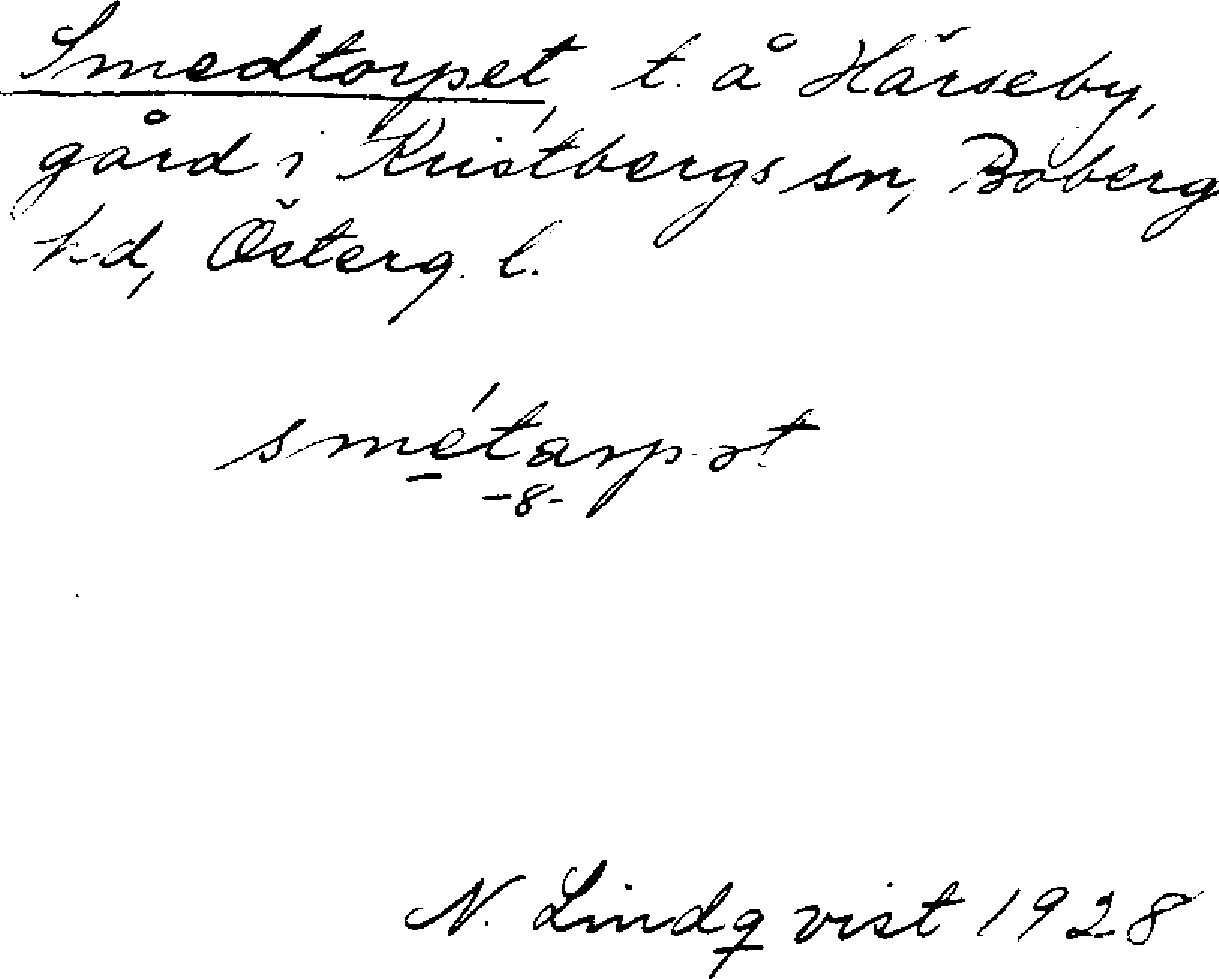 Smedtorpet, t. å Härseby,
gård i Kristbergs sn, Boberg
hd, Österg. l.
smétarpət
-8-
N. Lindqvist 1928